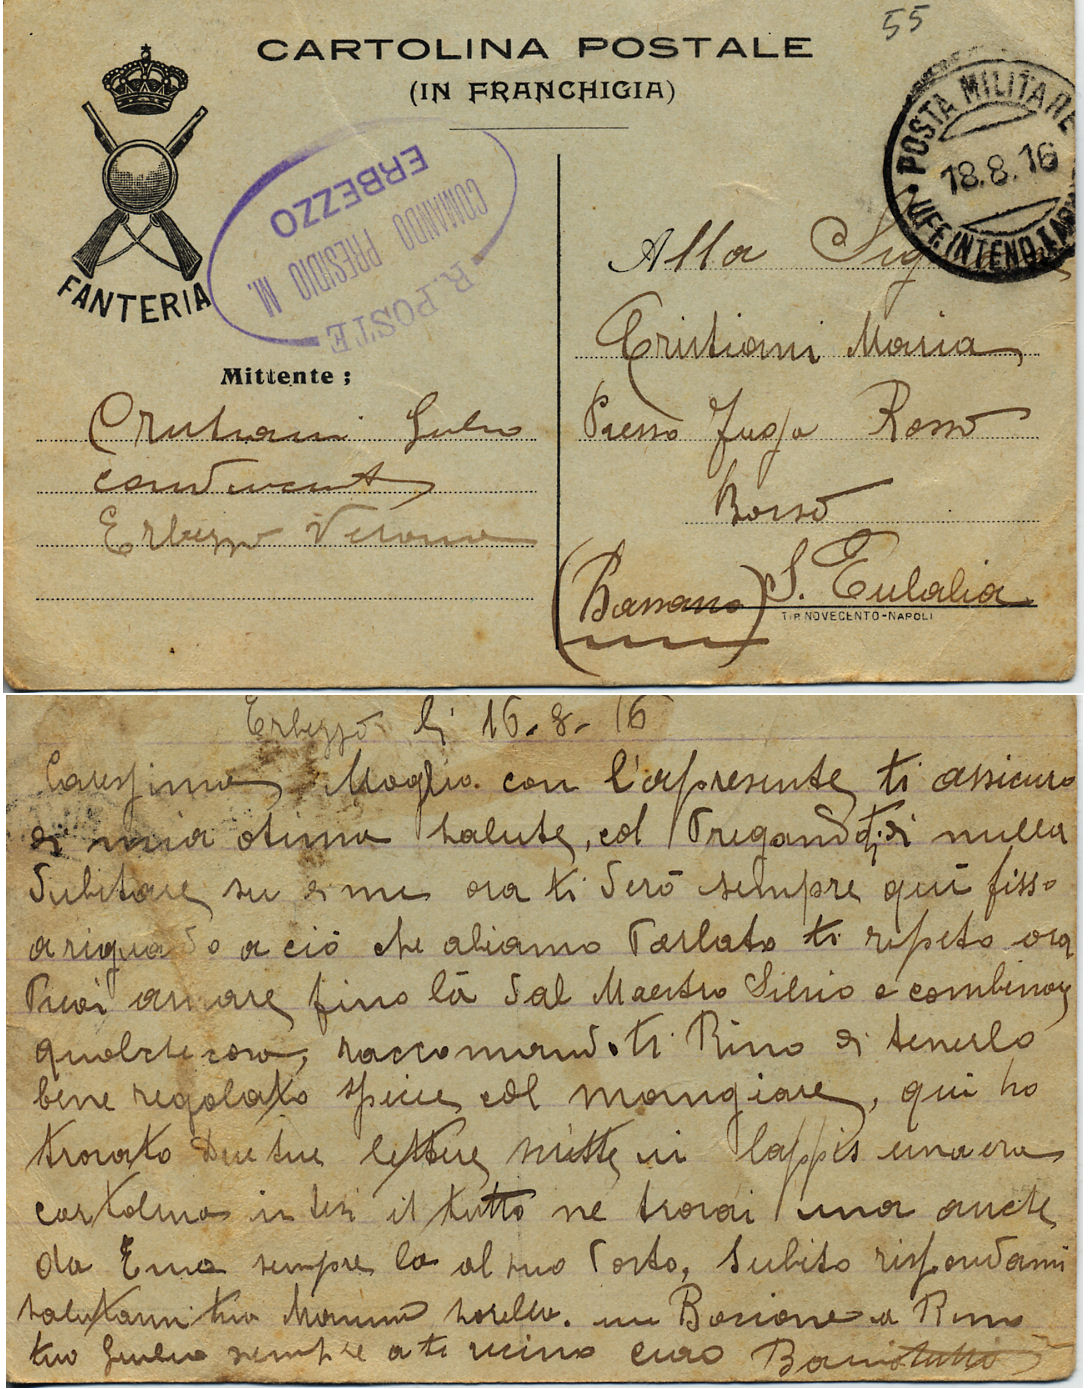 55
CARTOLINA POSTALE
(IN FRANCHIGIA)
POSTA MILITARE
18.8.16
UFF. INTEND.
ERBEZZO
COMANDO PRESIDIO M.
R. POSTE
FANTERIA
Mittente ;
Cristiani Giulio
Erbezzo Verona
Alla Sig
Cristiani Maria
Presso Rosso
Borso
(Bassano) S. Eulalia
TIP. NOVECENTO-NAPOLI
Erbezzo li 16-8-16
Carissima Moglie. con l'apresente ti assicuro
di mia otima salute, col Pregandoti di nulla
dubitare su di me ora ti derò sempre qui fisso
ariguado a ciò che abiamo Parlato ti repeto ora
Puoi andare fino là dal Maestro Silvio e combinar
qualche cosa, raccomandoti Rino di tenerlo
bene regolato specie col mangiare, qui ho
trovato due tue lettere scritte in lappis una era
cartolina intesi il tutto ne trovai una anche
da Ema sempre la al suo Posto, Subito rispondami
salutami tua Mamma sorella. un Bacione a Rino
tuo Giulio sempre a te vicino caro Bacio tutti